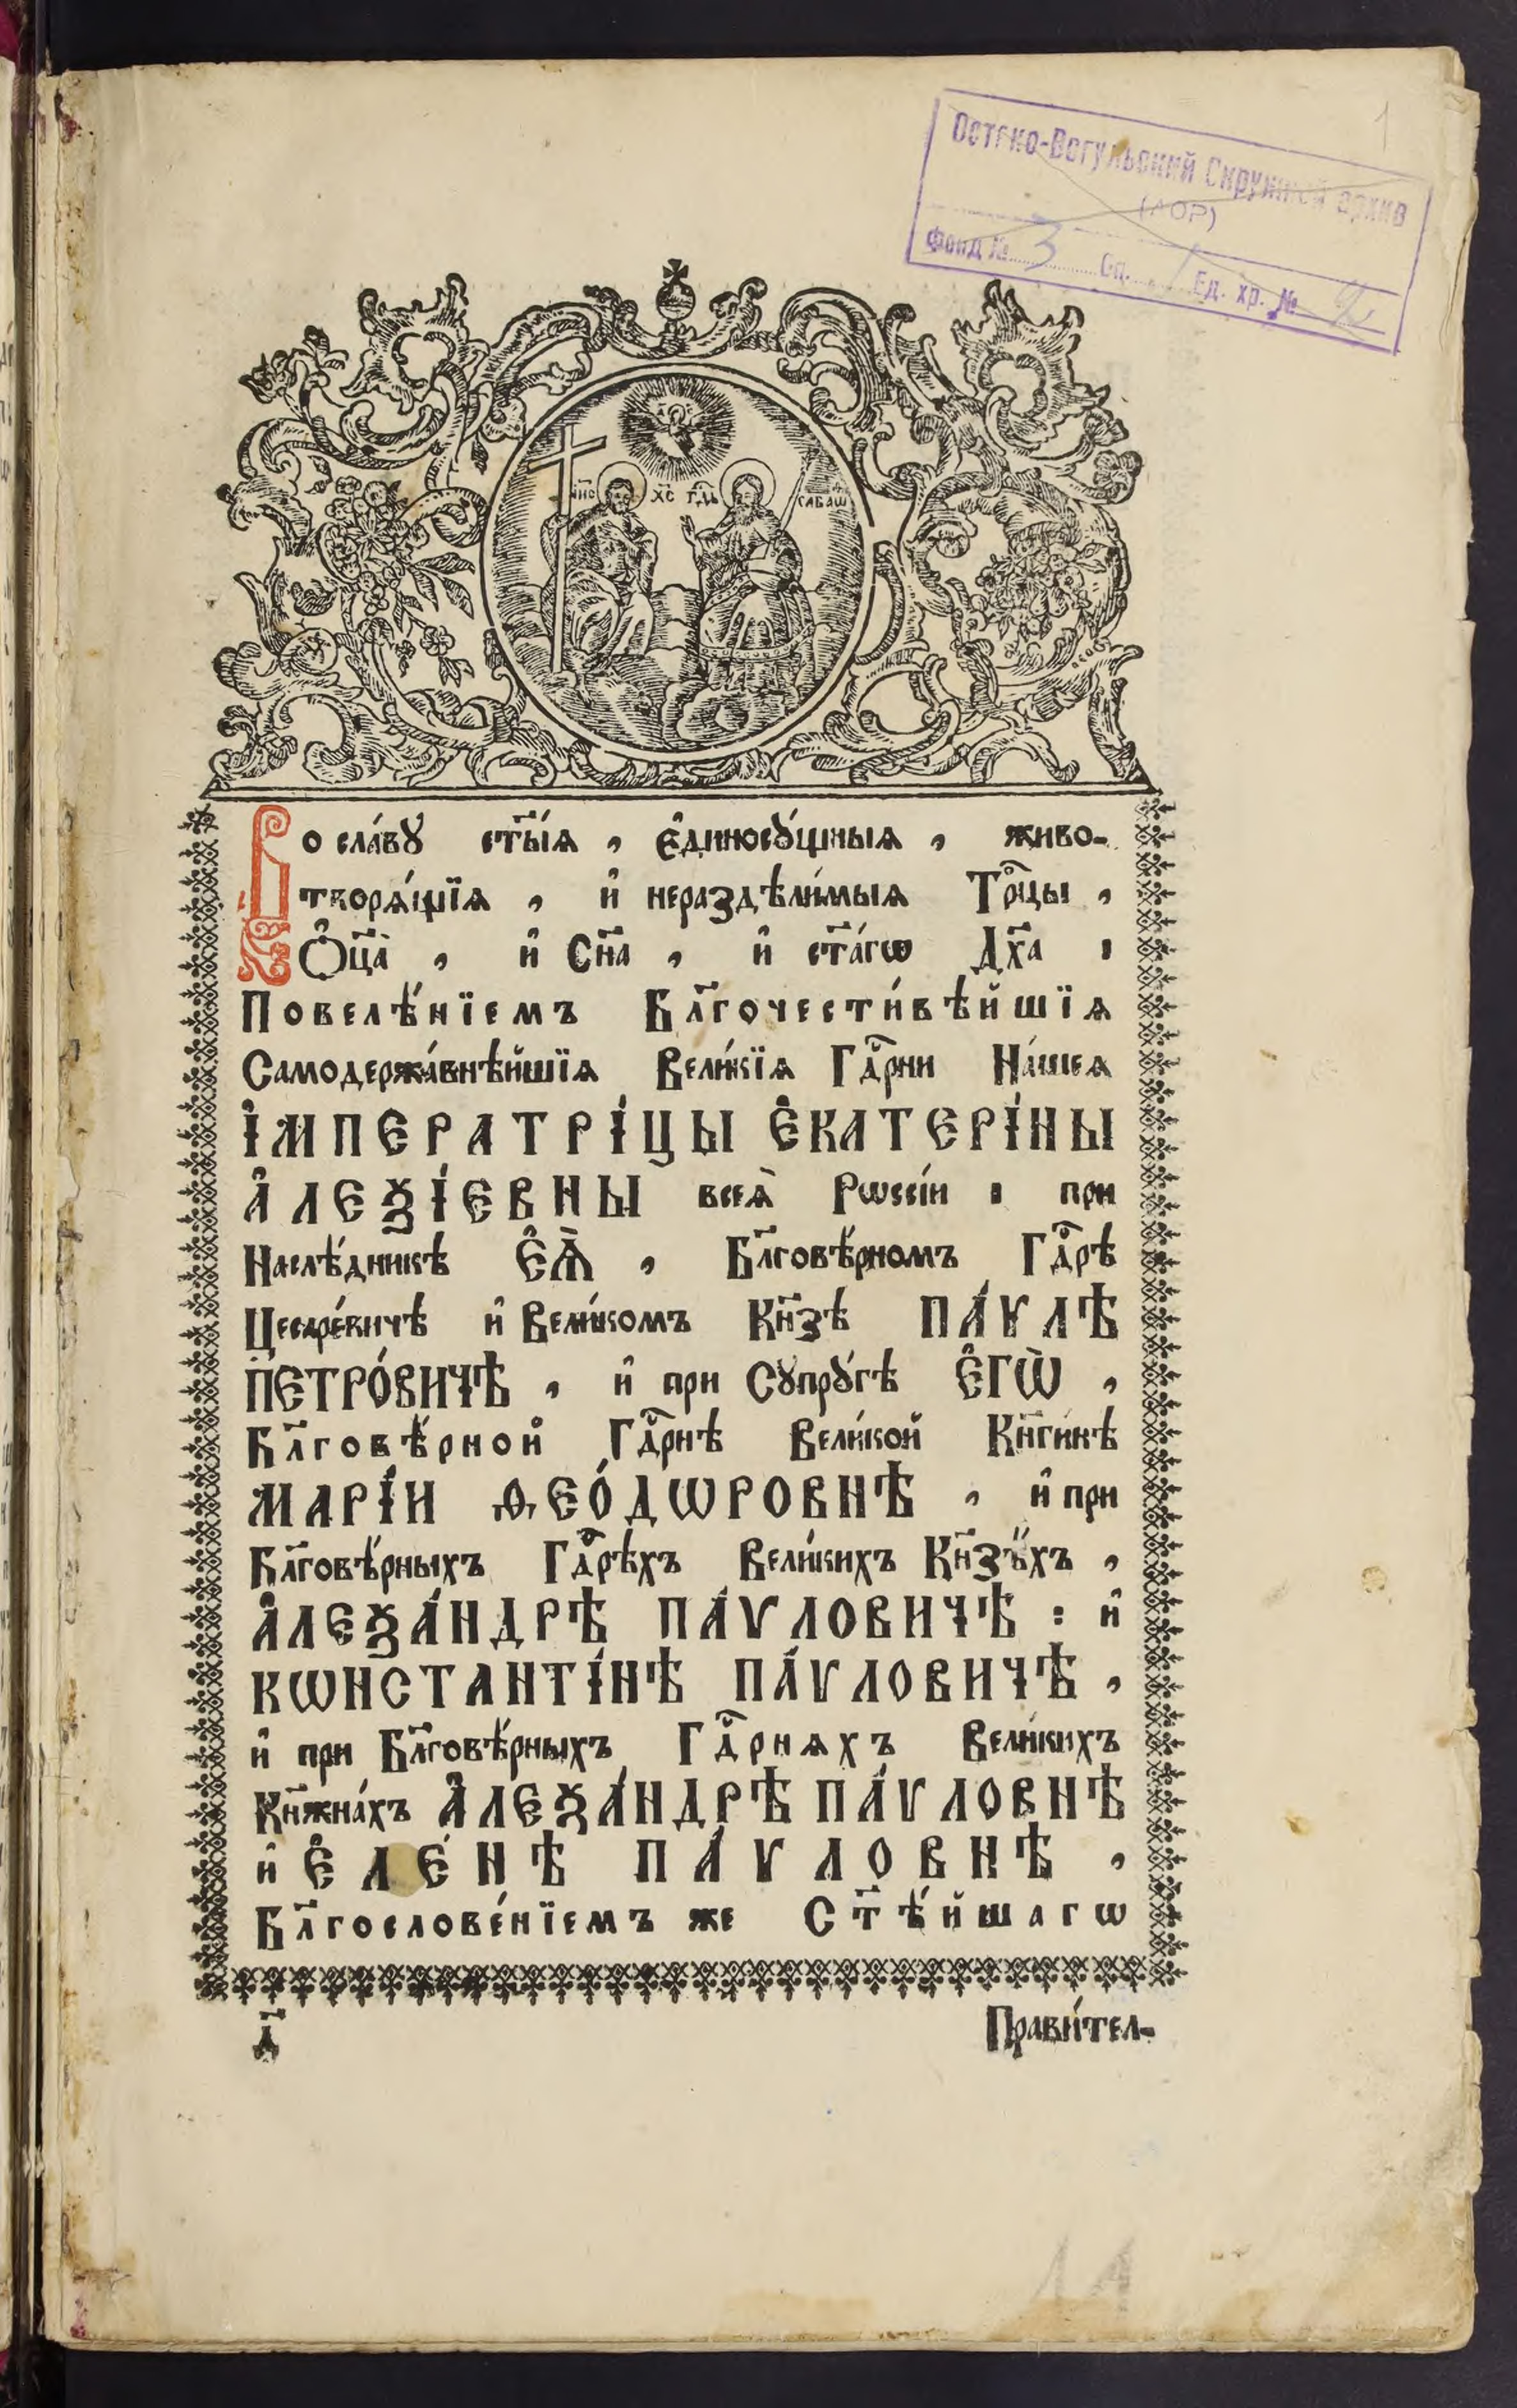 Остяко-Вогульский Окружной архив
(АОР)
Фонд № 3 Оп. 1 Ед. хр. № 2
1
І҆И҃С Х҃С Г҃ДЬ САВАѠ҃
Во сла́вꙋ ст҃ы́ѧ , є҆диносꙋ́щныѧ , живо-
творѧ́щїѧ , и҆ нераздѣли́мыѧ Трⷪ҇цы ,
Ѻ҆ц҃а̀ , и҆ Сн҃а , и҆ ст҃а́гѡ Дх҃а :
Повелѣ́нїемъ Бл҃гочести́вѣйшїѧ
Самодержа́внѣйшїѧ Вели́кїѧ Гдⷭ҇рни На́шеѧ
І҆МПЕРАТРІ́ЦЫ Є҆КАТЕРІ́НЫ
А҆ЛЕѮІ́ЕВНЫ всеѧ̀ Рѡссі́и : при
Наслѣ́дникѣ Є҆Ѧ̀ , Бл҃говѣ́рномъ Гдⷭ҇рѣ
Цесаре́вичѣ и҆ Вели́комъ Кн҃зѣ ПА́ѴЛѢ
ПЕТРО́ВИЧѢ , и҆ при Сꙋпрꙋ́гѣ Є҆ГѠ̀ ,
Бл҃говѣ́рной Гдⷭ҇рнѣ Вели́кой Кн҃ги́нѣ
МАРІ́И ѲЕО́ДѠРОВНѢ , и҆ при
Бл҃говѣ́рныхъ Гдⷭ҇рѣхъ Вели́кихъ Кн҃зѣ́хъ ,
А҆ЛЕѮА́НДРѢ ПА́ѴЛОВИЧѢ : и҆
КѠНСТАНТІ́НѢ ПА́ѴЛОВИЧѢ ,
и҆ при Бл҃говѣ́рныхъ Гдⷭ҇рнѧхъ Вели́кихъ
Кн҃жна́хъ А҆ЛЕѮА́НДРѢ ПА́ѴЛОВНѢ
и҆ Є҆ЛЕ́НѢ ПА́ѴЛОВНѢ ,
Бл҃гослове́нїемъ же Ст҃ѣ́йшагѡ
А҃
Прави́тел-